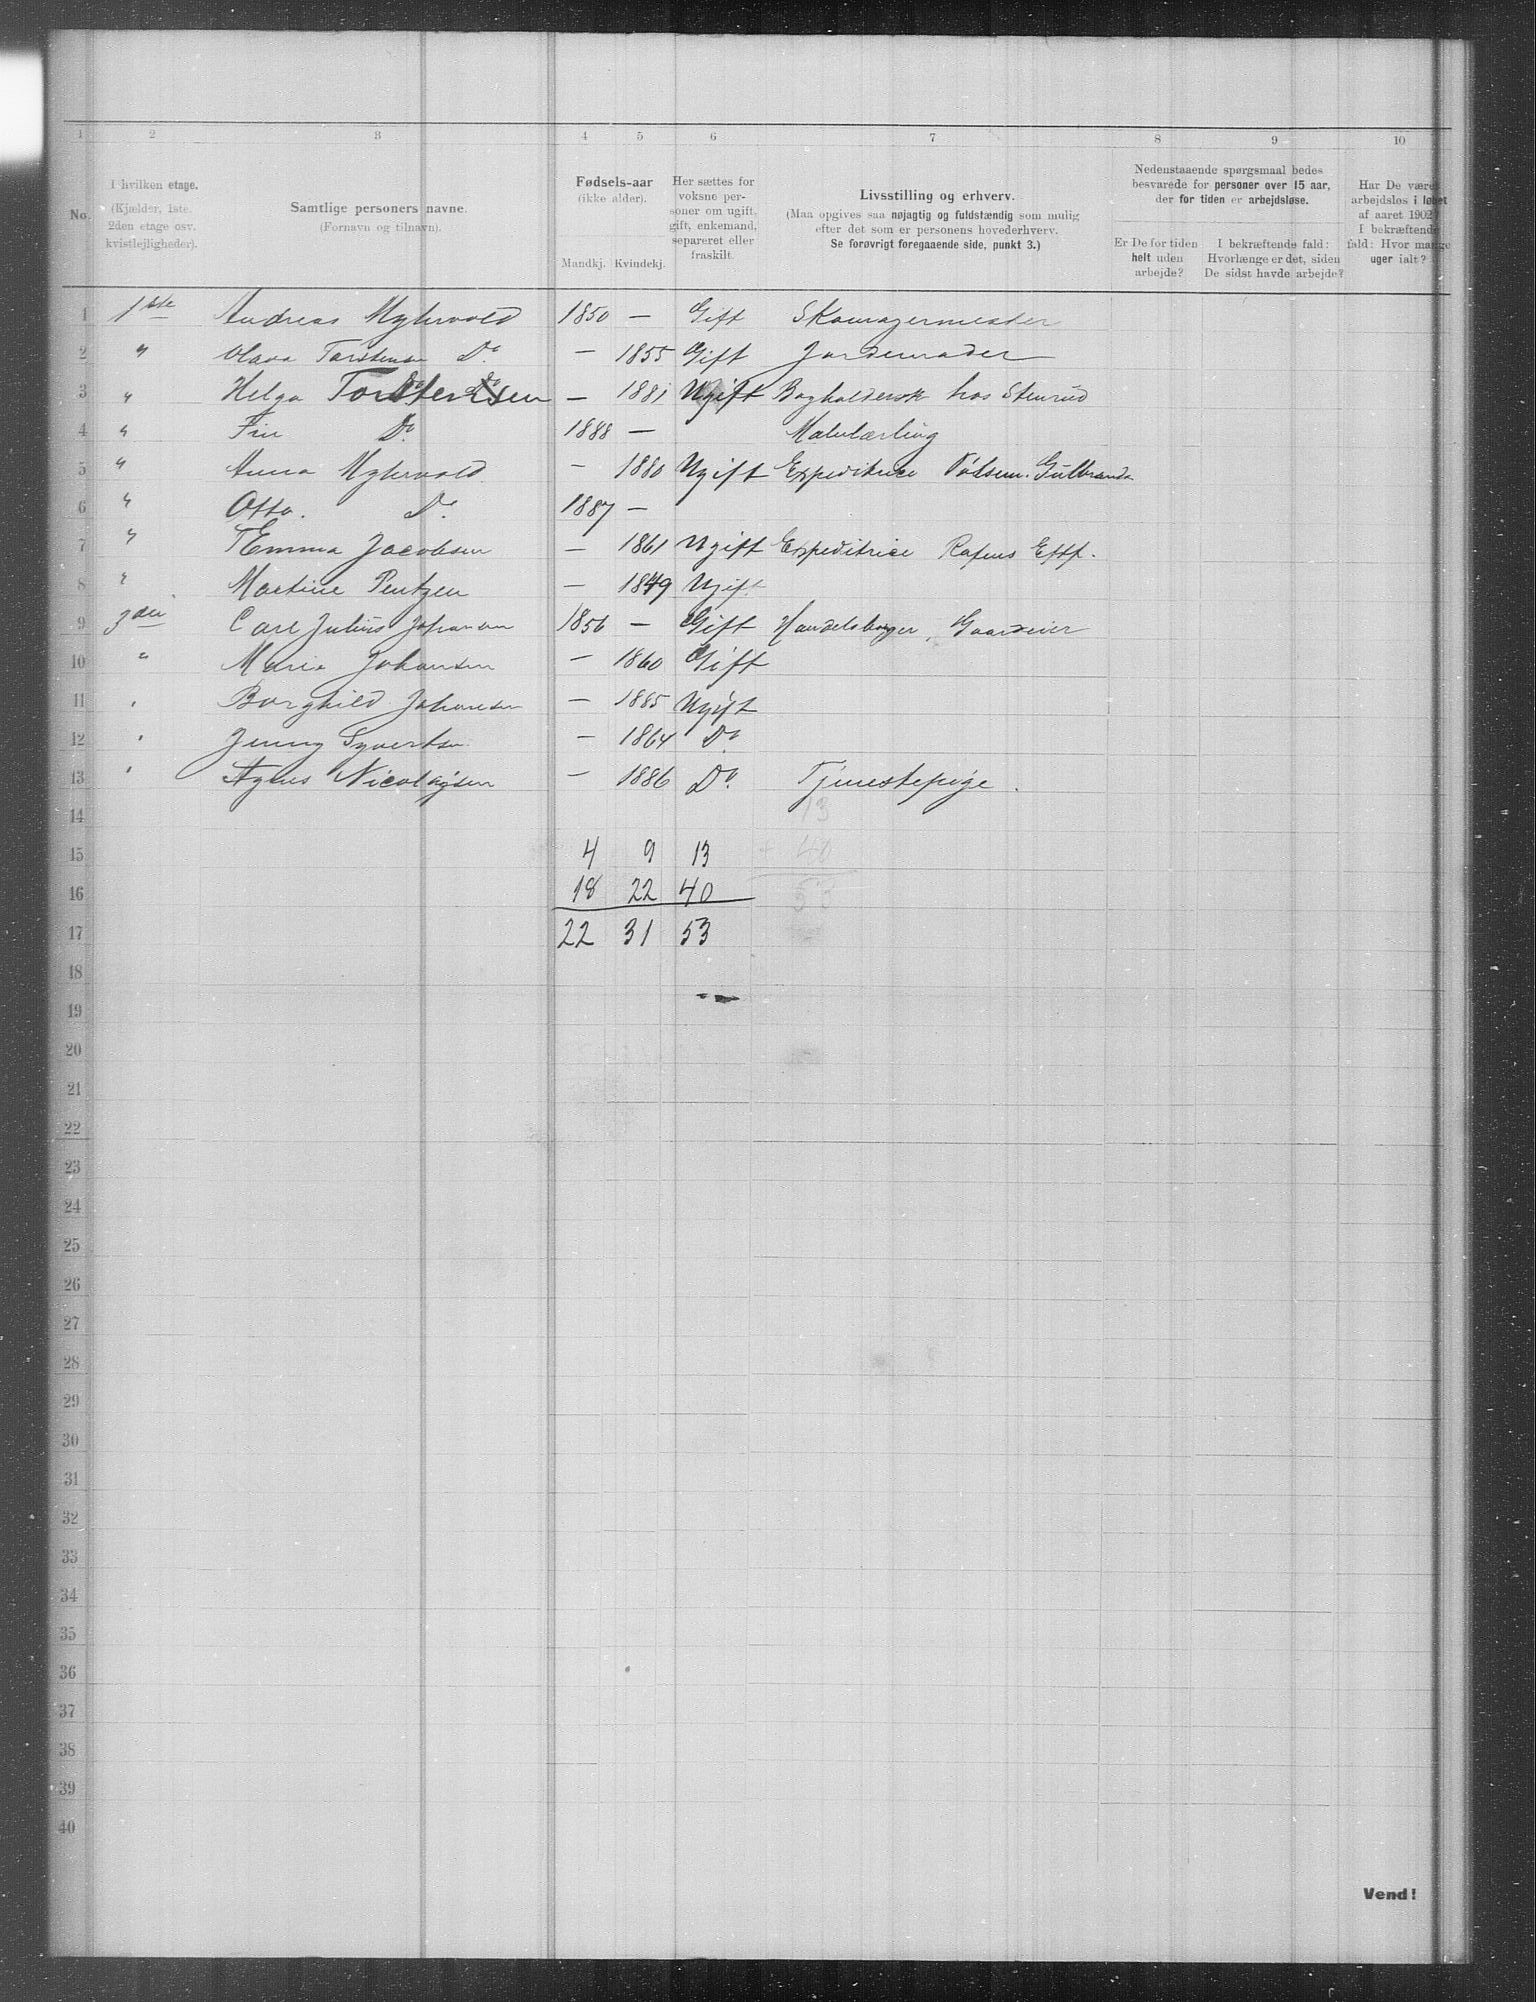 1 2 3 4 5 6 7 8 9 10
No.
I hvilken etage.
(Kjælder, 1ste.
2den etage osv.
kvistlejligheder).
Samtlige personers navne.
(Fornavn og tilnavn).
Fødsels-aar
(ikke alder).
Mandkj. Kvindekj.
Her sættes for
voksne per-
soner om ugift,
gift, enkemand,
separeret eller
fraskilt.
Livsstilling og erhverv.
(Maa opgives saa nøjagtig og fuldstændig som mulig
efter det som er personens hovederhverv.
Se forøvrigt foregaaende side, punkt 3.)
Nedenstaaende spørgsmaal bedes
besvarede for personer over 15 aar,
der for tiden er arbejdsløse.
Er De for tiden
helt uden
arbejde?
I bekræftende fald:
Hvorlænge er det, siden
De sidst havde arbejde?
Har De være
arbejdsløs i løbet
af aaret 1902?
I bekræftende
fald: Hvor mange
uger ialt?
1 1ste Andreas Myhrvold 1850 — Gift Skomagermester
2 " Olava Torstensen Do — 1855 Gift Jordemoder
3 " Helga Torstensen — 1881 Ugift Bogholderske hos Stenrud
4 " Fin Do 1888 — Malerlærling
5 " Anna Myhrvold — 1880 Ugift Expeditrice Gulbrands
6 " Otto. Do. 1887 —
7 " Emma Jacobsen — 1861 Ugift Expeditrice Eftf.
8 " Martine Pentzen — 1849 Ugift
9 3die Carl Julius Johansen 1856 — Gift Handelsborger, Gaardeier
10 " Marie Johansen — 1860 Gift
11 " Borghild Johansen — 1885 Ugift
12 " Jenny Syvertsen — 1864 Do
13 " Agnes Nicolaysen — 1886 Do. Tjenestepige.
14 13
15 4 9 13 + 40
16 18 22 40 53
17 22 31 53
18
19
20
21
22
23
24
25
26
27
28
29
30
31
32
33
34
35
36
37
38
39
40
Vend!